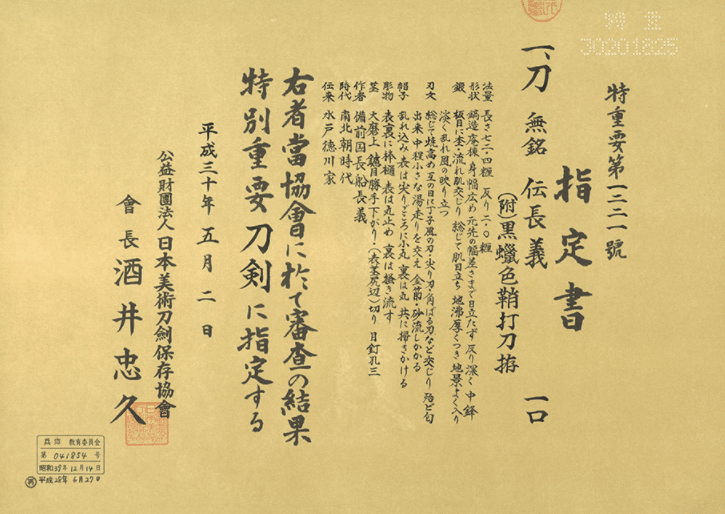 特重
30201825
特重要第一二二一號
指定書
一、刀 無銘 伝長義 一口
(附)黒蠟色鞘打刀拵
法量 長さ七二・四糎 反り二・〇糎
形状 鎬造 庵棟 身幅広め 元先の幅差さまで目立たず 反り深く 中鋒
鍛 板目に杢・流れ肌交じり 総じて肌目立ち 地沸厚くつき 地景よく入り
淡く乱れ風の映り立つ
刃文 総じて焼高め 互の目に丁子風の刃・尖り刃・角ばる刃など交じり 殆ど匂
出来 中程小さな湯走りを交え 金筋・砂流しかかる
帽子 乱れ込み 表は尖りごころに小丸 裏は丸 共に掃きかける
彫物 表裏に棒樋 表は丸止め 裏は掻き流す
茎 大磨上 鑢目勝手下がり・(表茎尻辺)切り 目釘孔三
作者 備前国長船長義
時代 南北朝時代
伝来 水戸徳川家
右者當協會に於て審査の結果
特別重要刀剣に指定する
平成三十年五月二日
公益財團法人日本美術刀劍保存協會
會長 酒井忠久
教育委員会
第 041854 号
昭和39年12月14日
平成28年6月27日